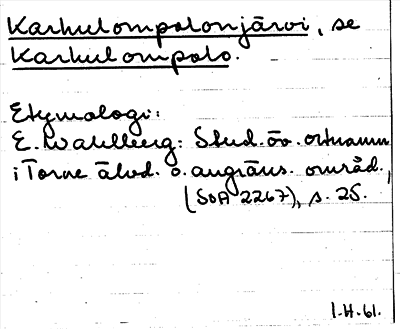 Karhulompolonjärvi, se
Karhulompolo.
Etymologi:
E. Wahlberg: Stud. öv. ortnamn
i Torne älvd. o. angräns. områd.,
(SOA 2267), s. 25.
1.H.61.